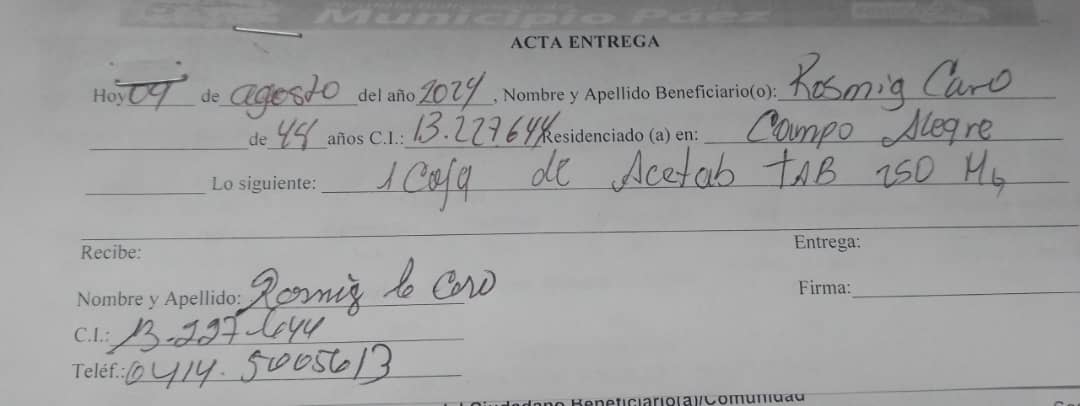 Municipio Páez
ACTA ENTREGA
Hoy 09 de agosto del año 2024, Nombre y Apellido Beneficiario(o): Rosmig Caro
de 48 años C.I.: 13.227644 Residenciado (a) en: Campo Alegre
Lo siguiente: 1 Caja de Acetab TAB 250 Mg
Recibe: Entrega:
Nombre y Apellido: Rosmig Caro Firma:
C.I.: 13-227-644
Teléf.: 0414-5005613
Beneficiario(a)/Comunidad